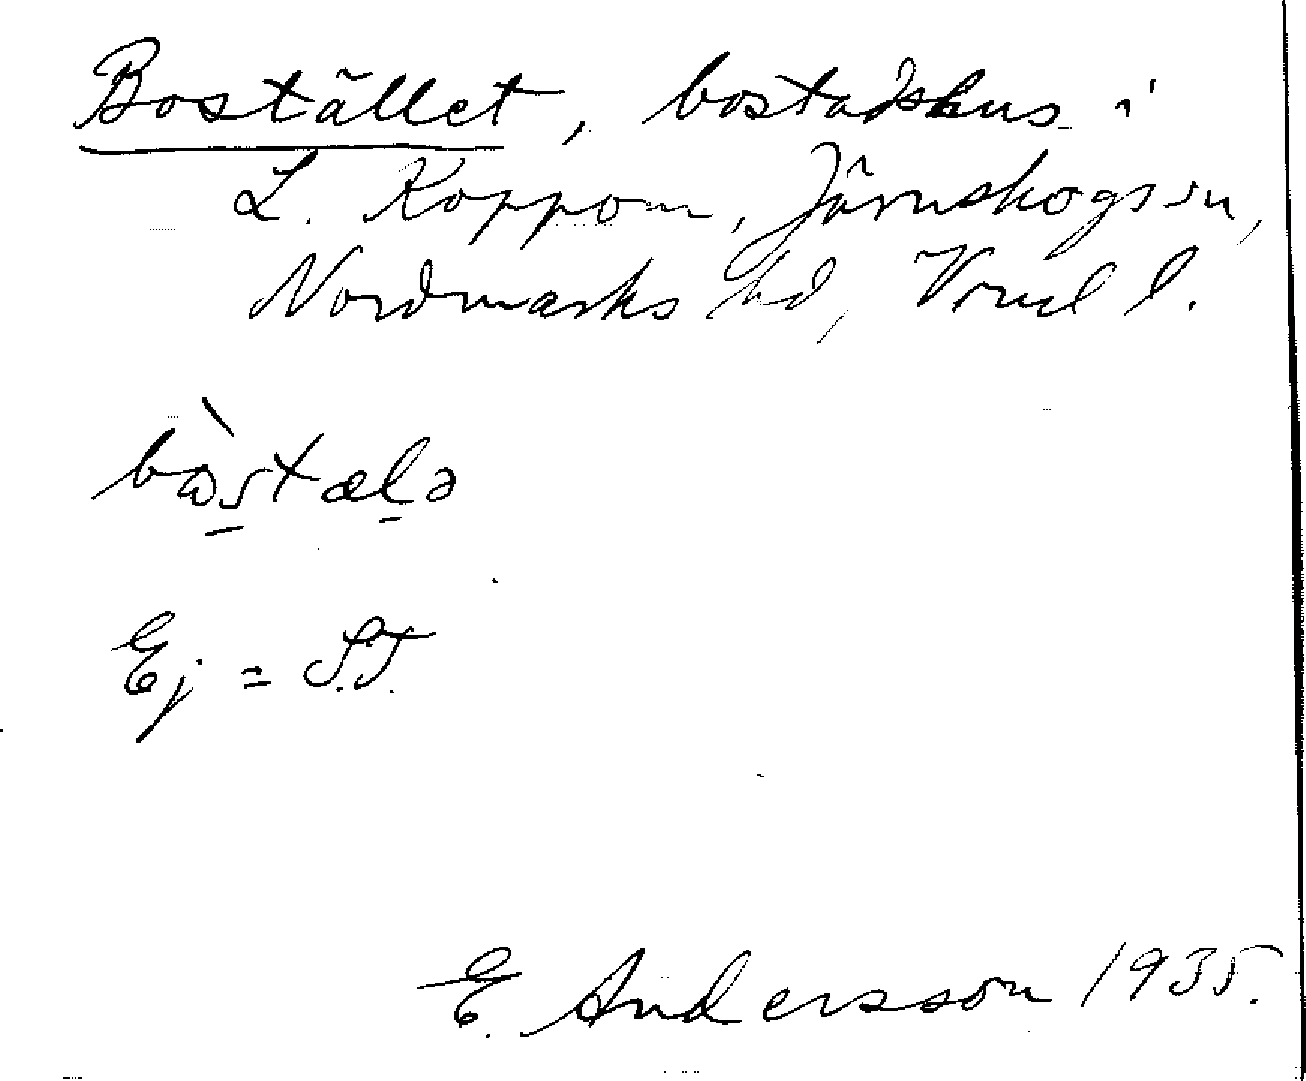 Bostället, bostadshus i
L. Koppom, Järnskogs sn,
Nordmarks hd, Vrml l.
bɷ̀s̠tæl̠ə
Ej = S.T.
E. Andersson 1935.